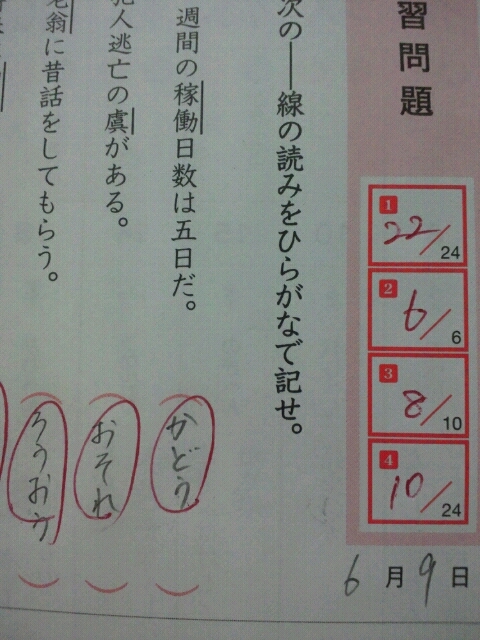 習問題
1 22/24
2 6/6
3 8/10
4 10/24
6月9日
次の──線の読みをひらがなで記せ。
週間の稼働日数は五日だ。
(かどう)
犯人逃亡の虞がある。
(おそれ)
老翁に昔話をしてもらう。
(ろうおう)